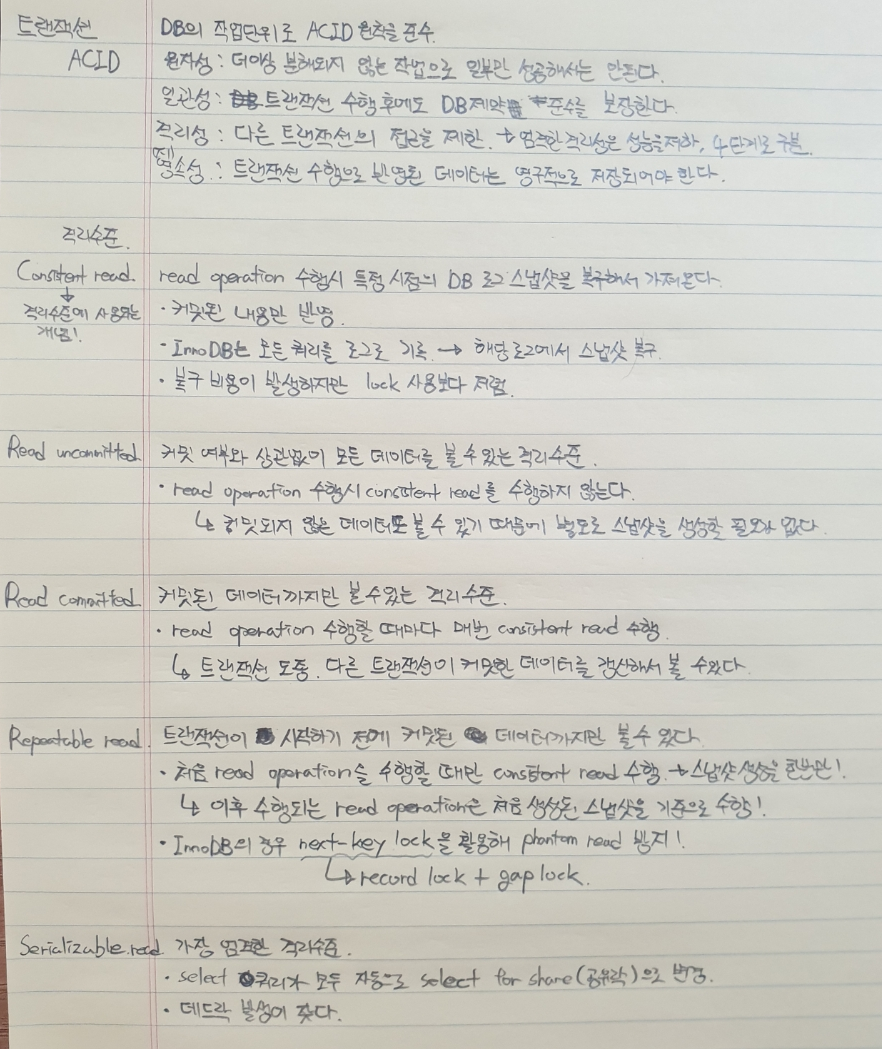 트랜잭션 DB의 작업단위로 ACID 원칙을 준수.
ACID 원자성 : 더이상 분해되지 않는 작업으로 일부만 성공해서는 안된다.
일관성 : 트랜잭션 수행 후에도 DB 제약 준수를 보장한다.
격리성 : 다른 트랜잭션의 접근을 제한. → 엄격한 격리성은 성능을 저하, 4단계로 구분.
영속성 : 트랜잭션 수행으로 반영된 데이터는 영구적으로 저장되어야 한다.
격리수준.
Consistent read. read operation 수행시 특정 시점의 DB 로그 스냅샷을 복구해서 가져온다.
↓
격리수준에 사용되는 · 커밋된 내용만 반영.
개념!
· InnoDB는 모든 쿼리를 로그로 기록 → 해당 로그에서 스냅샷 복구.
· 복구 비용이 발생하지만 lock 사용보다 저렴.
Read uncommitted. 커밋 여부와 상관없이 모든 데이터를 볼 수 있는 격리수준.
· read operation 수행시 consistent read를 수행하지 않는다.
↳ 커밋되지 않은 데이터도 볼 수 있기 때문에 별도로 스냅샷을 생성할 필요가 없다.
Read committed. 커밋된 데이터까지만 볼 수 있는 격리수준.
· read operation 수행할 때마다 매번 consistent read 수행.
↳ 트랜잭션 도중 다른 트랜잭션이 커밋한 데이터를 갱신해서 볼 수 있다.
Repeatable read. 트랜잭션이 시작하기 전에 커밋된 데이터까지만 볼 수 있다.
· 처음 read operation을 수행할 때만 consistent read 수행. → 스냅샷 생성을 한번만!
↳ 이후 수행되는 read operation은 처음 생성된 스냅샷을 기준으로 수행!
· InnoDB의 경우 next-key lock을 활용해 phantom read 방지!
↳ record lock + gap lock.
Serializable read. 가장 엄격한 격리수준.
· select 쿼리가 모두 자동으로 select for share(공유락)으로 변경.
· 데드락 발생이 잦다.